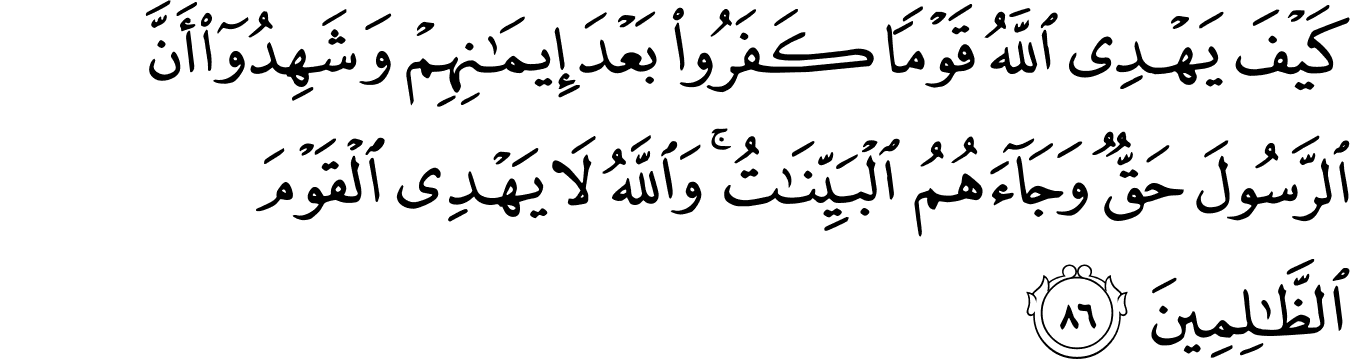 كَيْفَ يَهْدِى ٱللَّهُ قَوْمًا كَفَرُوا۟ بَعْدَ إِيمَـٰنِهِمْ وَشَهِدُوٓا۟ أَنَّ
ٱلرَّسُولَ حَقٌّ وَجَآءَهُمُ ٱلْبَيِّنَـٰتُ ۚ وَٱللَّهُ لَا يَهْدِى ٱلْقَوْمَ
ٱلظَّـٰلِمِينَ ٨٦